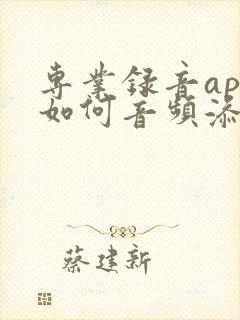 專業録音ap
如何音頻添
蔡建新